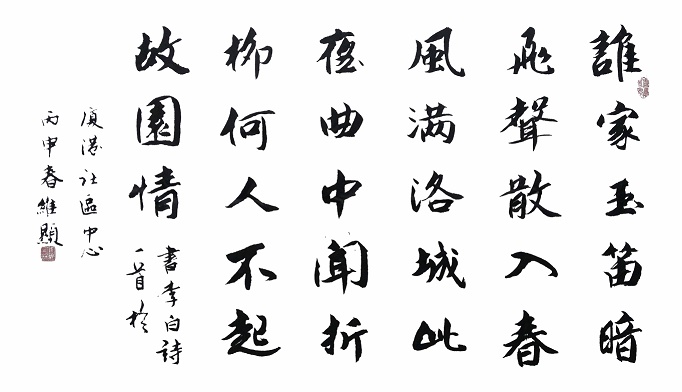 誰家玉笛暗
飛聲散入春
風满洛城此
夜曲中聞折
柳何人不起
故園情
書李白詩
一首於
厦港社區中心
丙申春維顯